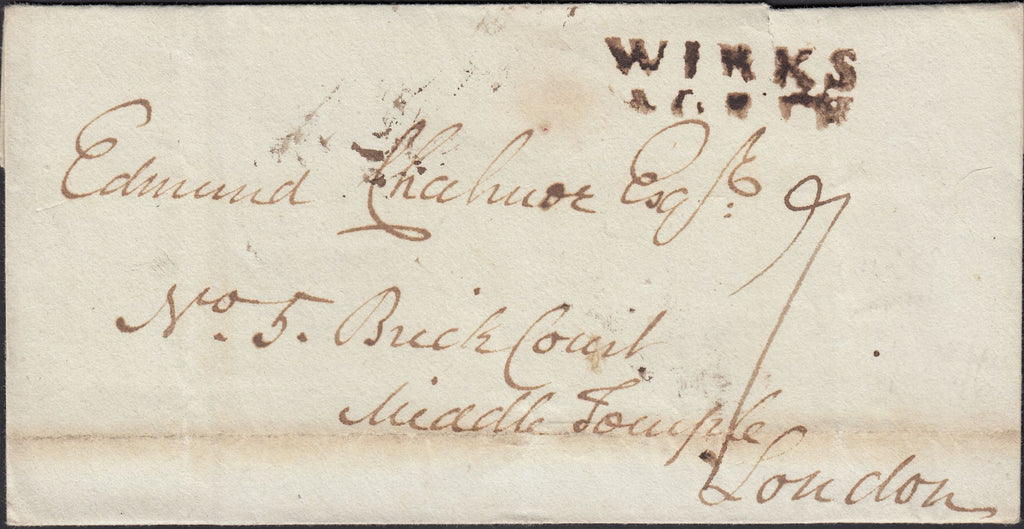 WIRKS
Edmund Chalmor Esqr.
7
No. 5. Brick Court
Middle Temple
London